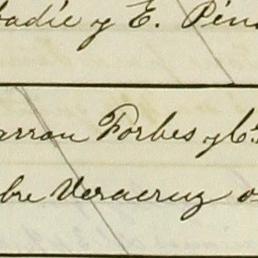 badie y E. Pén
arron Forbes y Ca
bre Veracruz o